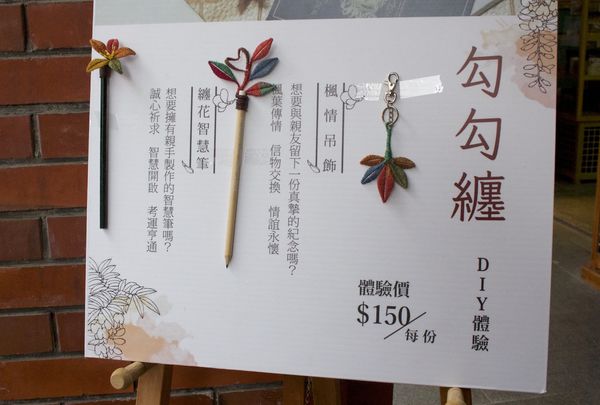 勾勾纏
DIY體驗
體驗價
$150/每份
楓情吊飾
想要與親友留下一份真摯的紀念嗎？
楓葉傳情 信物交換 情誼永懷
纏花智慧筆
想要擁有親手製作的智慧筆嗎？
誠心祈求 智慧開啟 考運亨通